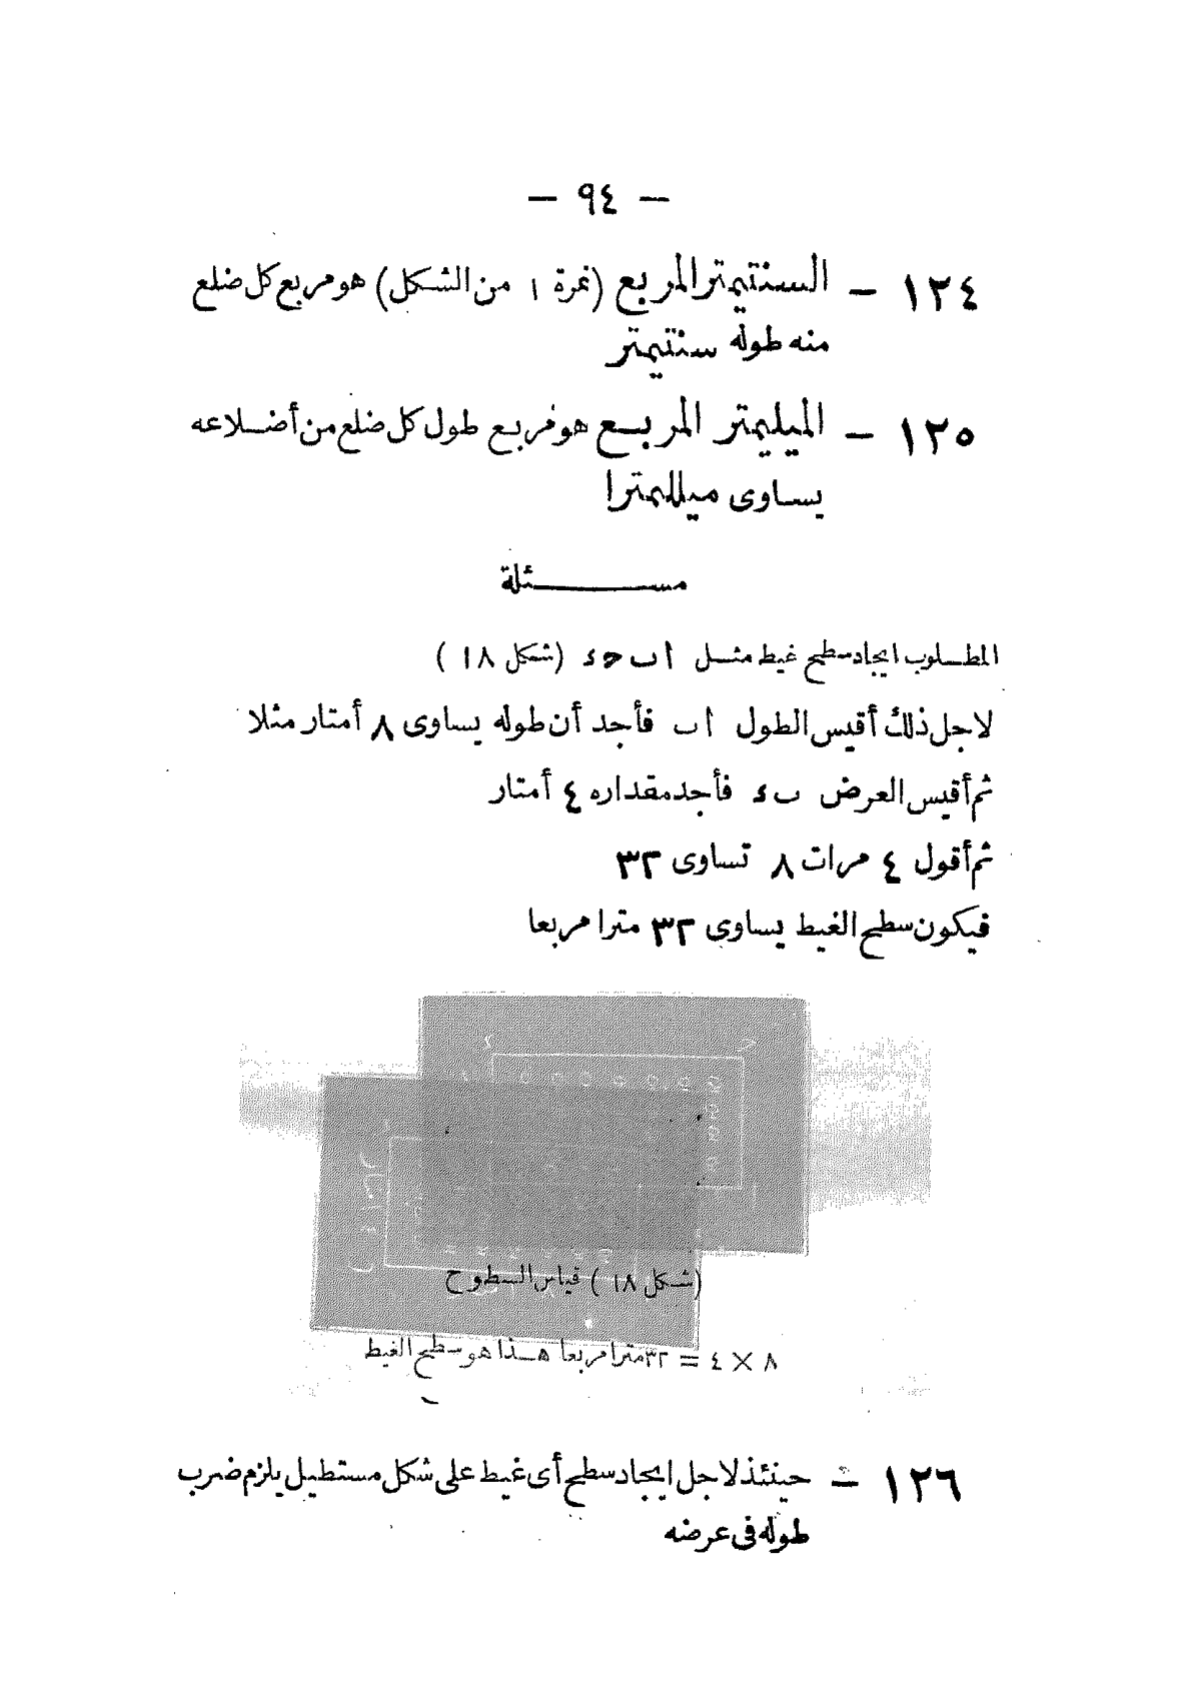 — ٩٤ —
١٢٤ — السنتيمتر المربع (نمرة ١ من الشكل) هو مربع كل ضلع
منه طوله سنتيمتر
١٢٥ — الميليمتر المربع هو مربع طول كل ضلع من أضلاعه
يساوى ميلليمترا
مسئلة
المطلوب ايجاد سطح غيط مثل ا ب ح ء (شكل ١٨)
لاجل ذلك أقيس الطول ا ب فأجد أن طوله يساوى ٨ أمتار مثلا
ثم أقيس العرض ب ء فأجد مقداره ٤ أمتار
ثم أقول ٤ مرات ٨ تساوى ٣٢
فيكون سطح الغيط يساوى ٣٢ مترا مربعا
(شكل ١٨) قياس السطوح
٨ × ٤ = ٣٢ مترا مربعا هذا هو سطح الغيط
١٢٦ — حينئذ لاجل ايجاد سطح أى غيط على شكل مستطيل يلزم ضرب
طوله فى عرضه